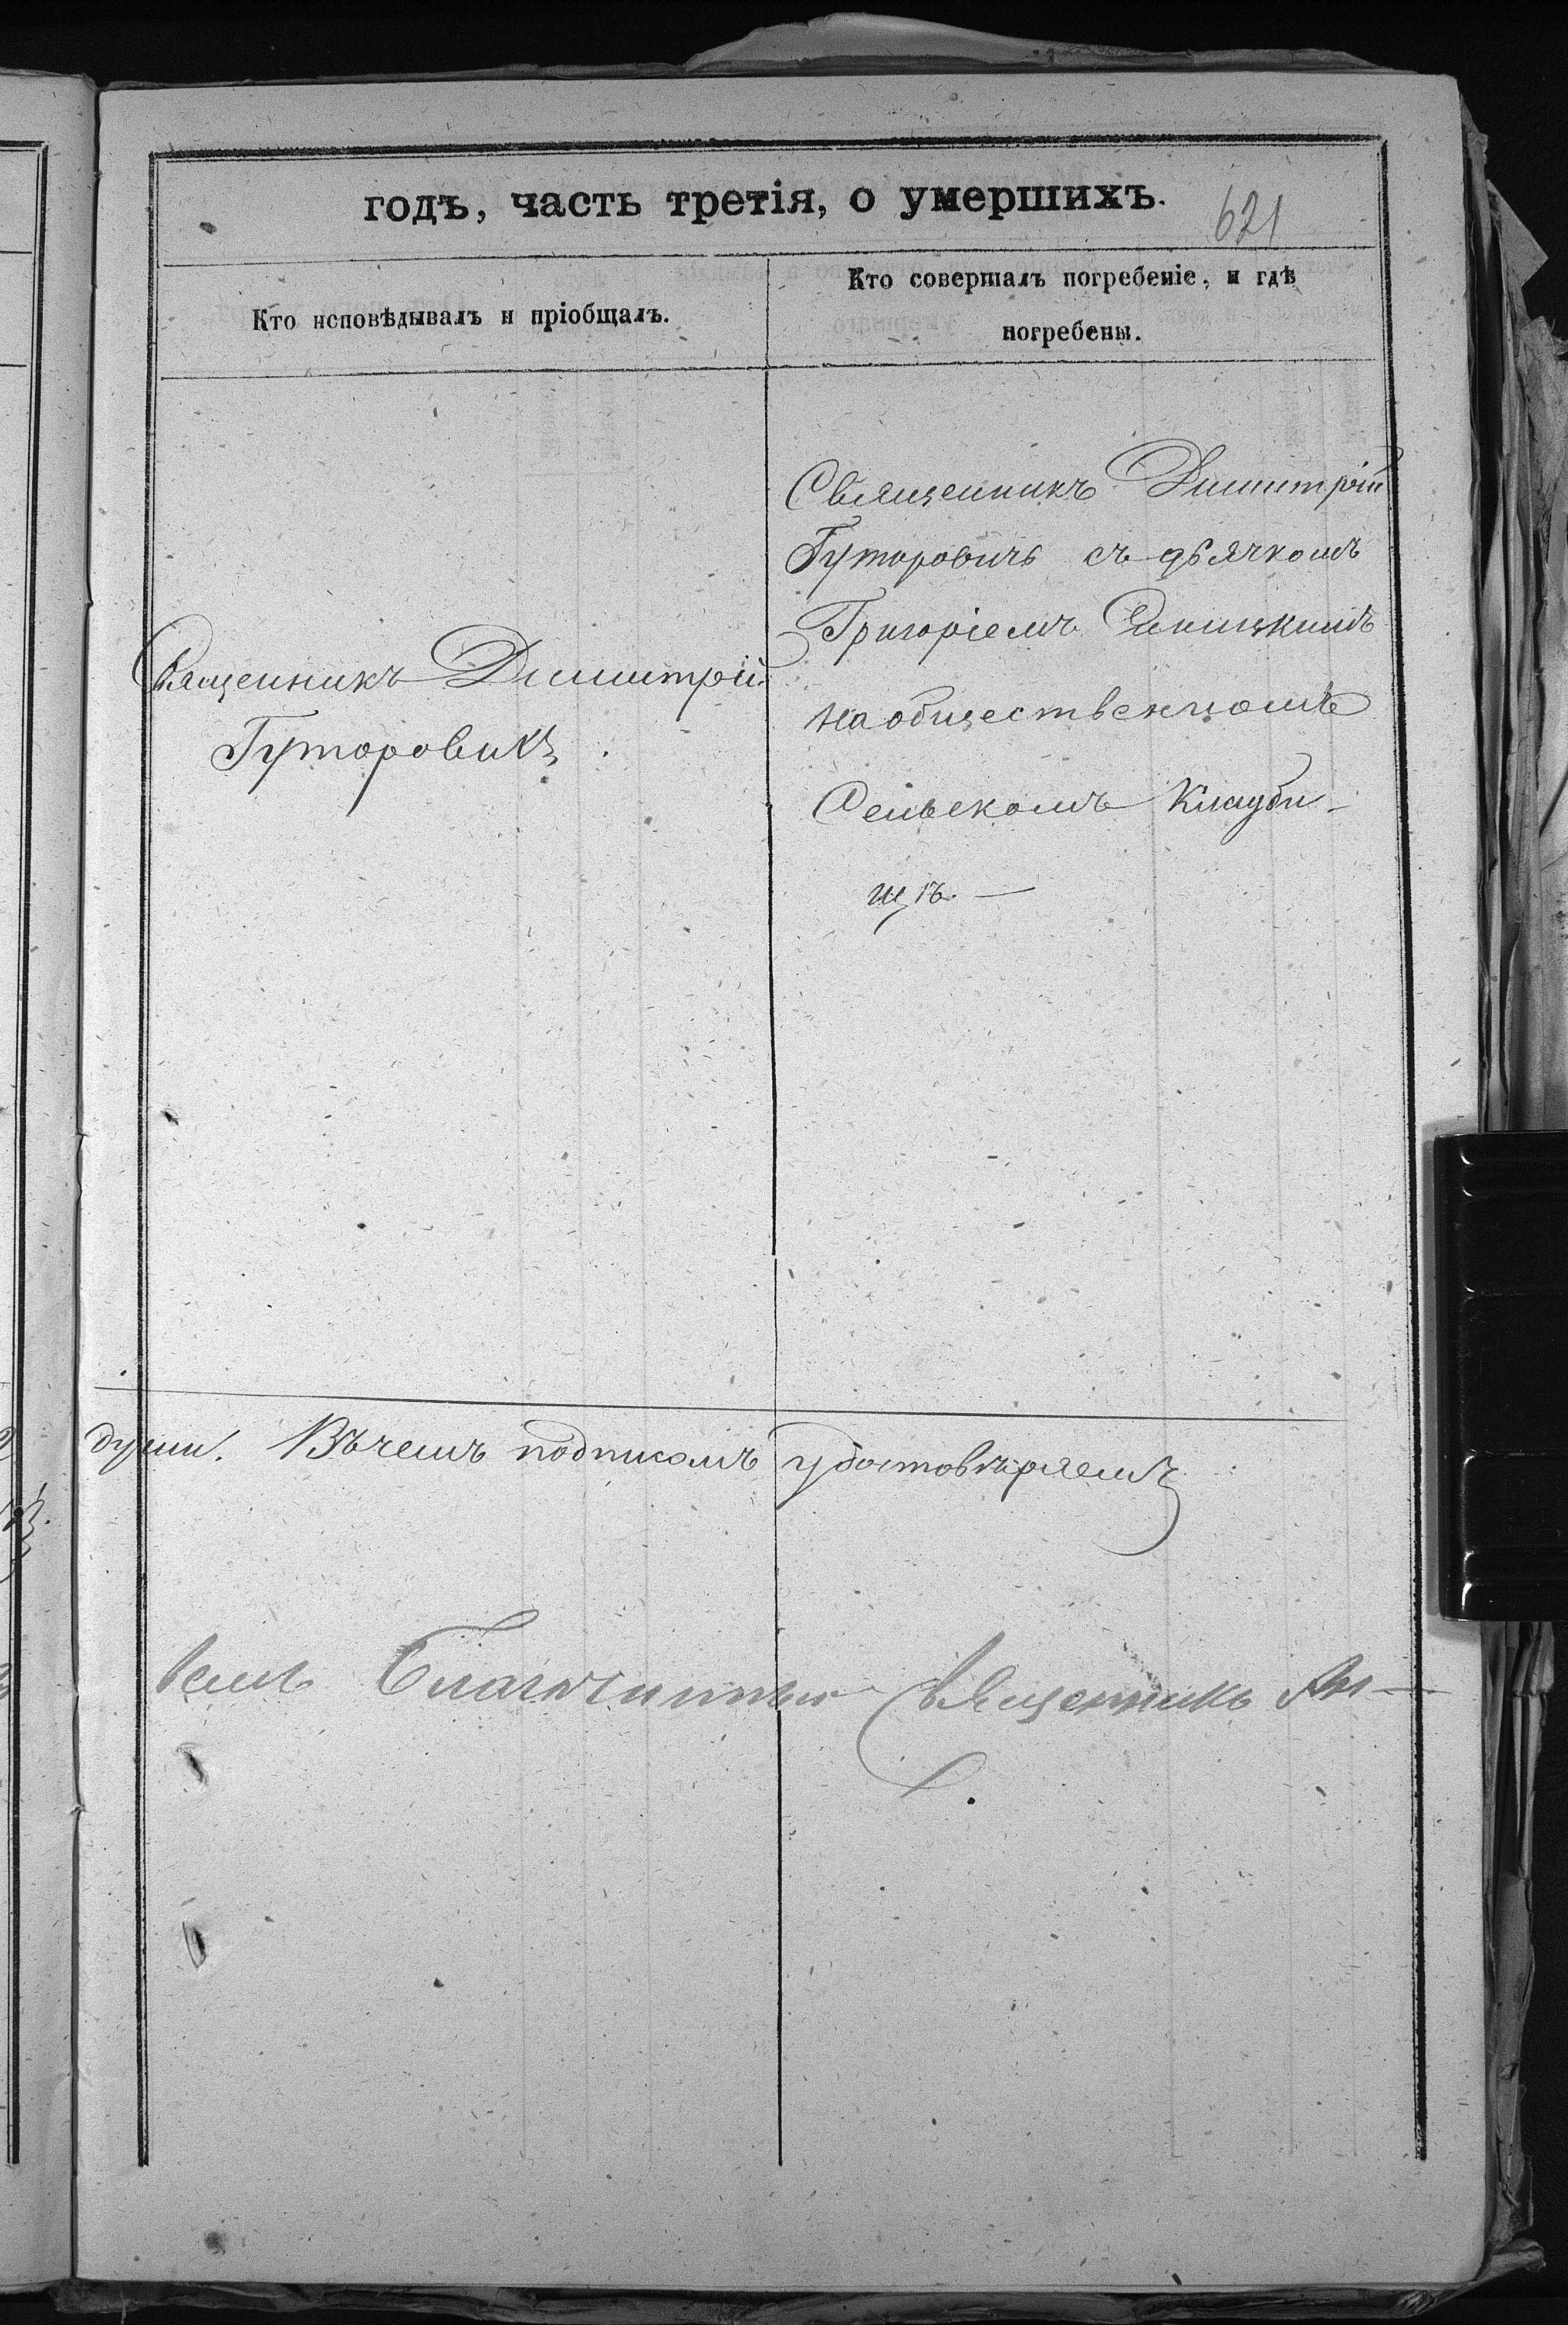 годъ, часть третія, о умершихъ.
621
Кто исповѣдывалъ и пріобщалъ.
Кто совершалъ погребеніе, и гдѣ
погребены.
Священникъ Димитрій
Гуторовичъ
Священникъ Димитрій
Гуторовичъ съ дьячкомъ
Григоріемъ
на общественномъ
Сельскомъ Кладби-
щѣ. —
души. Въ чемъ подписомъ удостовѣряемъ
Благочинный Священникъ